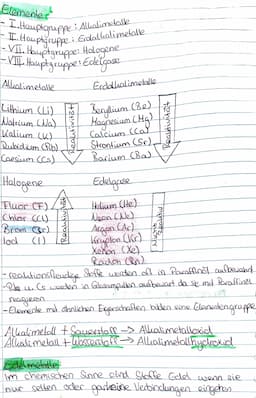 Elemente
- I. Hauptgruppe: Alkalimetalle
- II. Hauptgruppe: Erdalkalimetalle
- VII. Hauptgruppe: Halogene
- VIII. Hauptgruppe: Edelgase
Alkalimetalle Erdalkalimetalle
Lithium (Li) Beryllium (Be)
Natrium (Na) Magnesium (Mg)
Kalium (K) Calcium (Ca)
Rubidium (Rb) Strontium (Sr)
Caesium (Cs) Barium (Ba)
Reaktivität Reaktivität
Halogene Edelgase
Fluor (F) Helium (He)
Chlor (Cl) Neon (Ne)
Brom (Br) Argon (Ar)
Iod (I) Krypton (Kr)
Xenon (Xe)
Radon (Rn)
Reaktivität
- reaktionsfreudige Stoffe werden oft in Paraffinöl aufbewahrt
- Rb u. Cs werden in Glasampullen aufbewart da sie mit Paraffinöl
reagieren
- Elemente mit ähnlichen Eigenschaften bilden eine Elementengruppe
Alkalimetall + Sauerstoff → Alkalimetalloxid
Alkalimetall + Wasserstoff → Alkalimetallhydroxid
Edelmetalle
Im chemischen Sinne sind Stoffe Edel wenn sie
nur selten oder garkeine Verbindungen eingehen